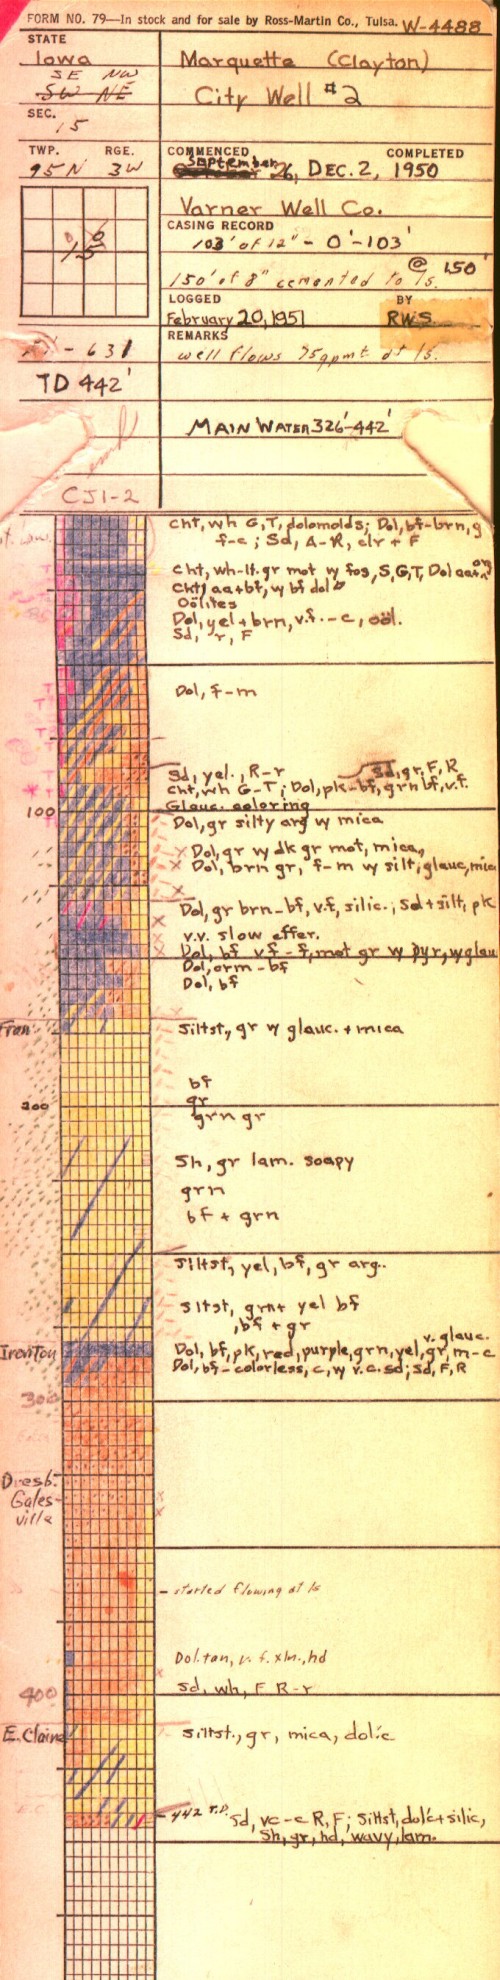 FORM NO. 79—In stock and for sale by Ross-Martin Co., Tulsa. W-4488
STATE
Iowa
Marquette (Clayton)
SE NW
SW NE
City Well #2
SEC.
15
TWP. RGE.
95N 3W
COMMENCED COMPLETED
September 26, DEC. 2, 1950
Varner Well Co.
CASING RECORD
103' of 12" - 0'-103'
150' of 8" cemented to ls. @ 150'
LOGGED BY
February 20, 1951 RWS
REMARKS
- 631
well flows 75gpm at ls.
TD 442'
MAIN WATER 326'-442'
CJ1-2
Cht, wh G,T, dolomolds; Dol, bf-brn, g
f-c; Sd, A-R, clr + F
Cht, wh-lt.gr mot w fos, S,G,T, Dol aa+
Cht, aa+bf, w bf dol
Oölites
Dol, yel + brn, v.f.-c, oöl.
Sd, r, F
Dol, f-m
Sd, yel., R-r Sd, gr, F, R
Cht, wh G-T; Dol, pk-bf, grn bf, v.f.
Glauc. coloring
100
Dol, gr silty arg w mica
Dol, gr w dk gr mot, mica,
Dol, brn gr, f-m w silt, glauc, mica
Dol, gr brn-bf, v.f, silic.; Sd+silt, pk
v.v. slow effer.
Dol, bf vf-f, mot gr w pyr, w glau
Dol, crm-bf
Dol, bf
Fran.
Siltst, gr w glauc. + mica
bf
200
gr
grn gr
Sh, gr lam. soapy
grn
bf + grn
Siltst, yel, bf, gr arg.
Sltst, grn+ yel bf
, bf + gr
v. glauc.
Ironton
Dol, bf, pk, red, purple, grn, yel, gr, m-c
Dol, bf-colorless, c, w v.c. sd; Sd, F, R
300
Dresb.
Gales-
ville
- started flowing at ls
Dol. tan, v. f. xln., hd
400
Sd, wh, F R-r
E.Claire
Siltst., gr, mica, dol'c
442 T.D.
Sd, vc-c R, F; Siltst, dol'c+silic,
Sh, gr, hd, wavy, lam.